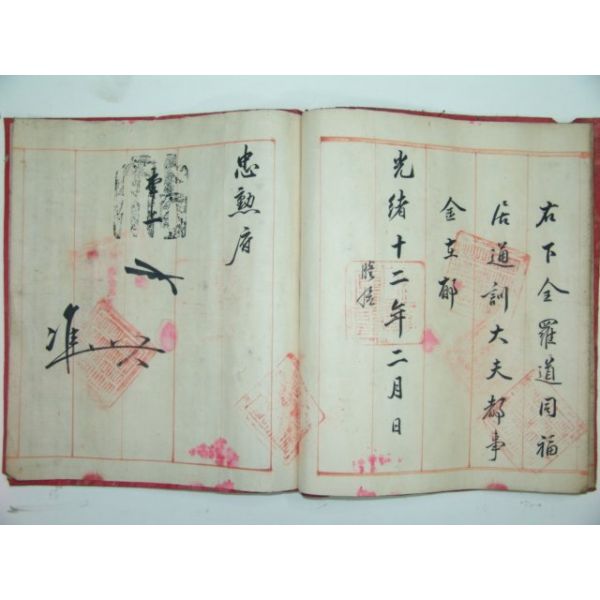 右下全羅道同福
居通訓大夫都事
金在郁
光緒十二年二月日
忠勲府
堂上
准